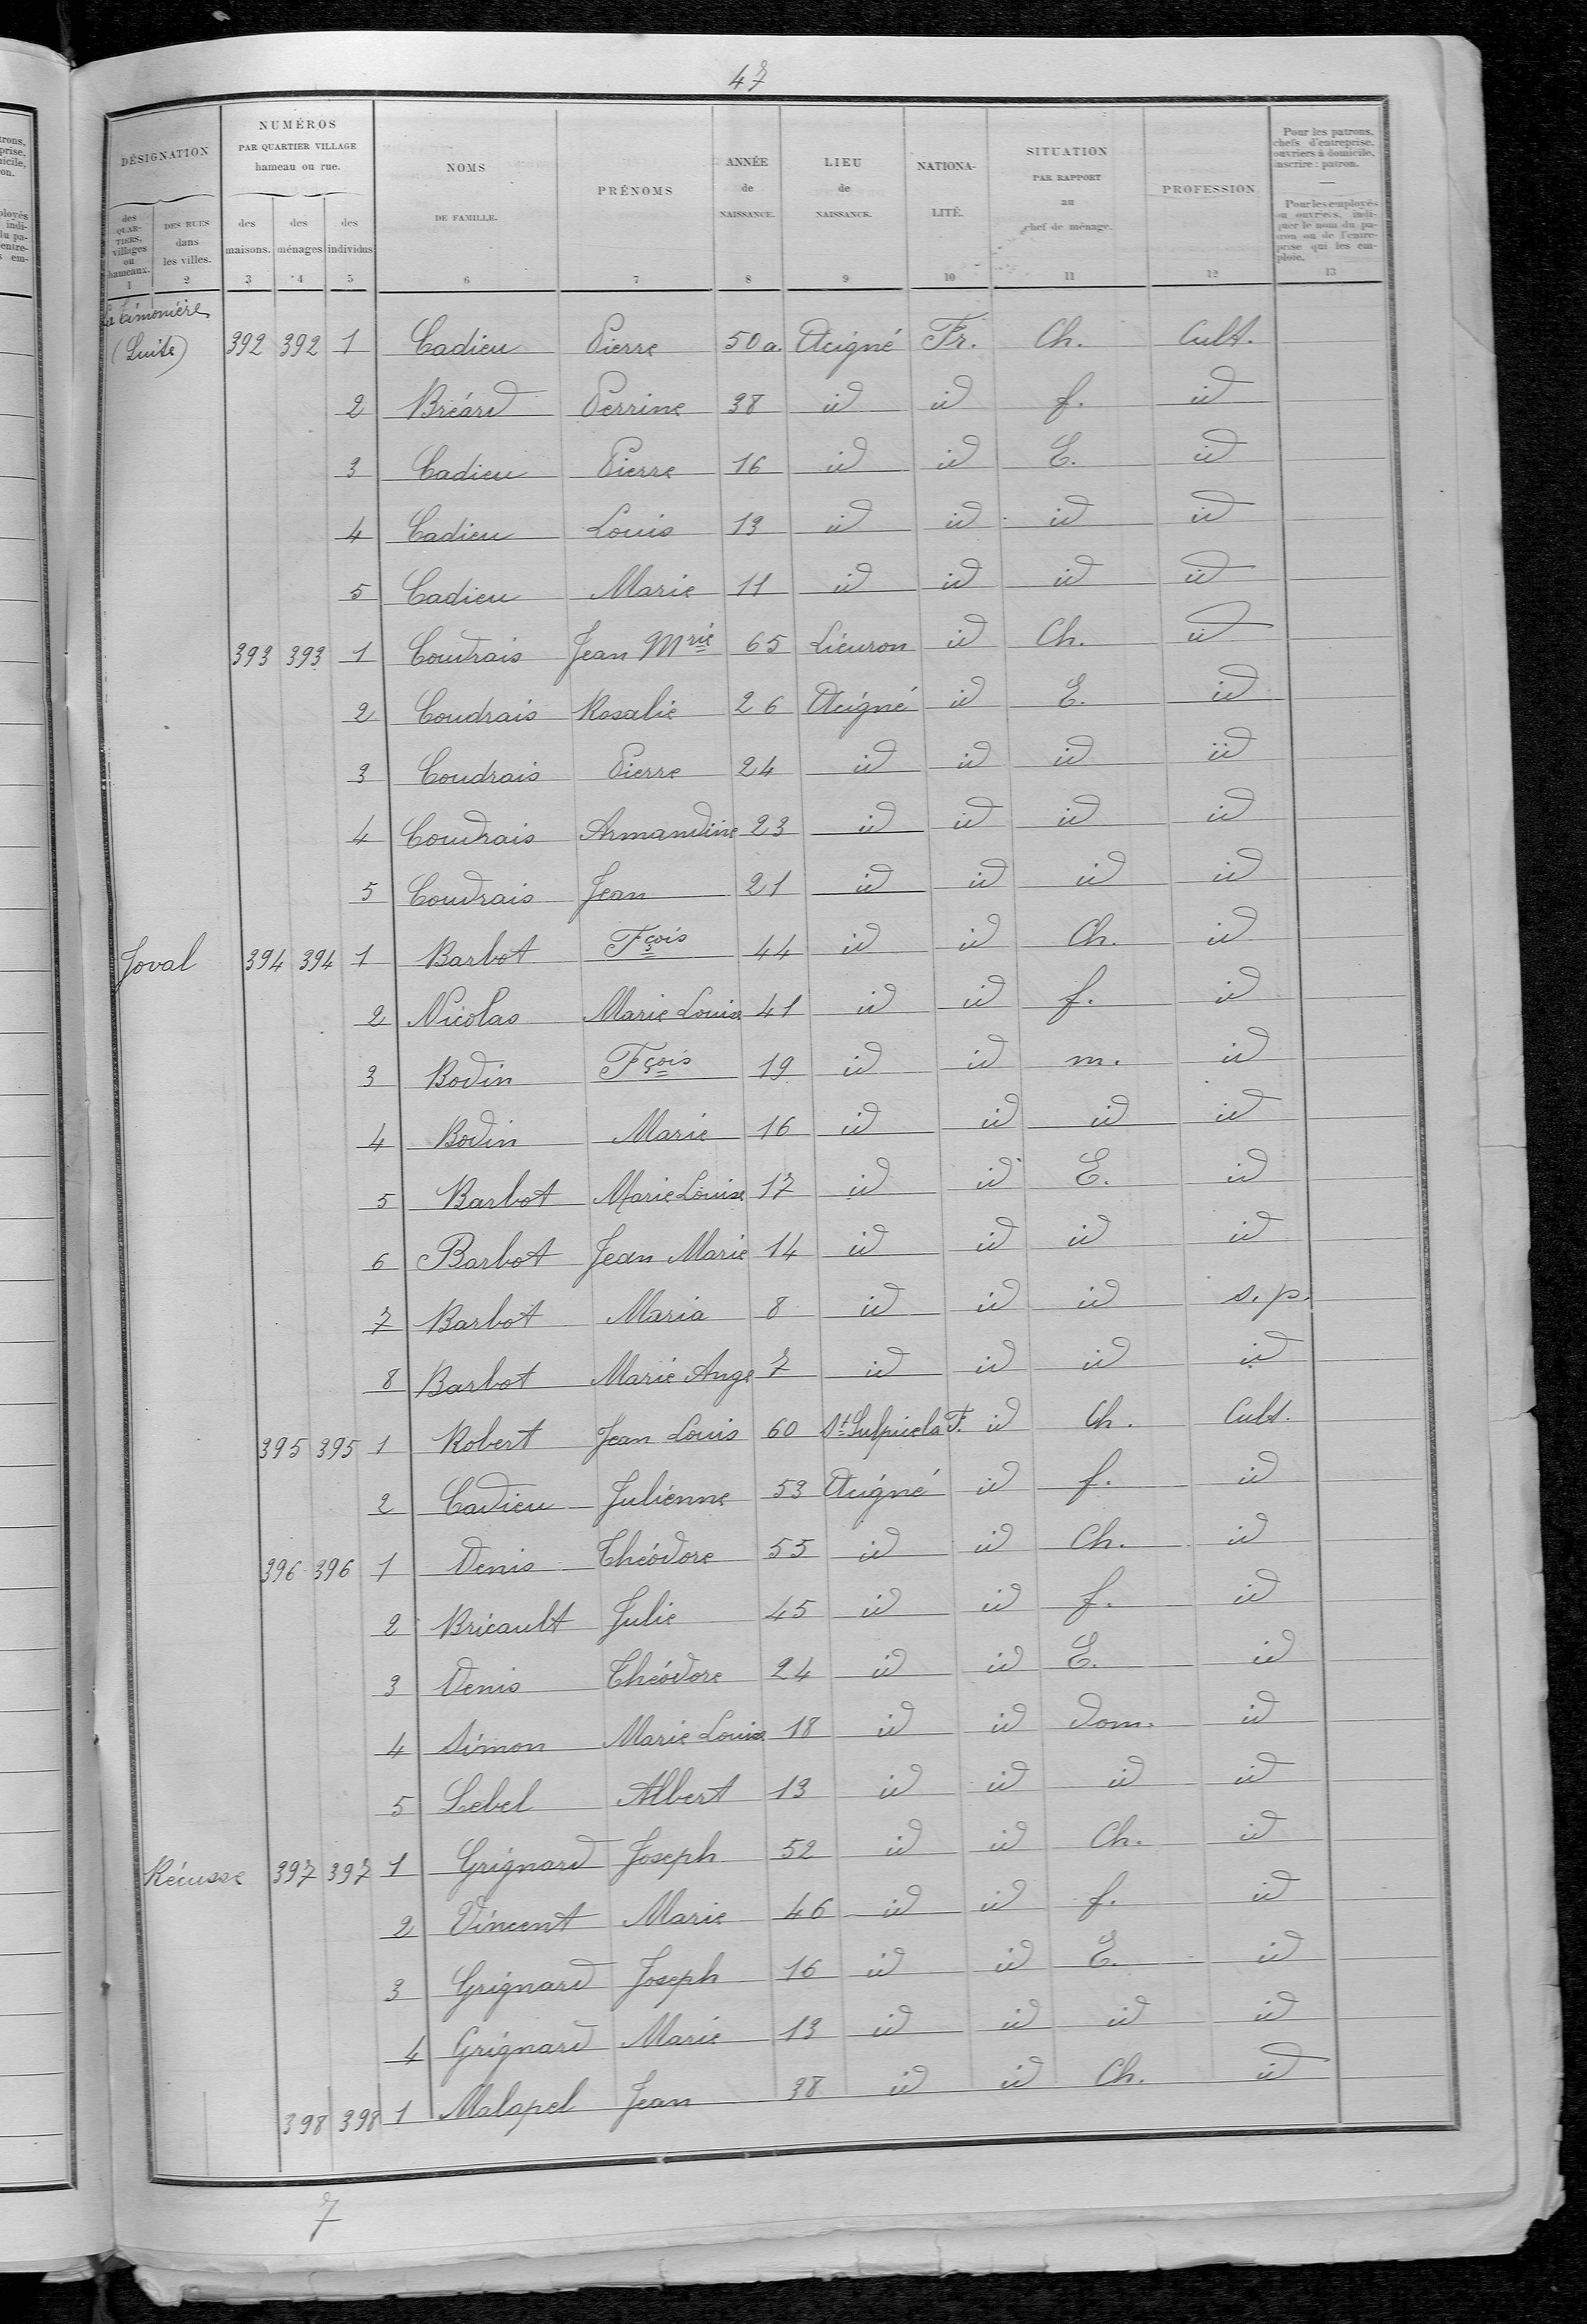 47
DÉSIGNATION
NUMÉROS
PAR QUARTIER VILLAGE
hameau ou rue.
NOMS
DE FAMILLE.
PRÉNOMS
ANNÉE
de
NAISSANCE.
LIEU
de
NAISSANCE.
NATIONA-
LITÉ.
SITUATION
PAR RAPPORT
au
chef de ménage.
PROFESSION
Pour les patrons,
chefs d'entreprise,
ouvriers à domicile,
inscrire : patron.
—
Pour les employés
ou ouvriers, indi-
quer le nom du pa-
tron ou de l'entre-
prise qui les em-
ploie.
des
QUAR-
TIERS,
villages
ou
hameaux.
DES RUES
dans
les villes.
des
maisons.
des
ménages
des
individus
1 2 3 4 5 6 7 8 9 10 11 12 13
La Timonière
(Suite) 392 392 1 Cadieu Pierre 50 a. Acigné Fr. Ch. Cult.
2 Bréard Perrine 38 id id f. id
3 Cadieu Pierre 16 id id E. id
4 Cadieu Louis 13 id id id id
5 Cadieu Marie 11 id id id id
393 393 1 Coudrais Jean Mrie 65 Lieuron id Ch. id
2 Coudrais Rosalie 26 Acigné id E. id
3 Coudrais Pierre 24 id id id id
4 Coudrais Armandine 23 id id id id
5 Coudrais Jean 21 id id id id
Joval 394 394 1 Barbot Fçois 44 id id Ch. id
2 Nicolas Marie Louise 41 id id f. id
3 Bodin Fçois 19 id id m. id
4 Bodin Marie 16 id id id id
5 Barbot Marie Louise 17 id id E. id
6 Barbot Jean Marie 14 id id id id
7 Barbot Maria 8 id id id s. p.
8 Barbot Marie Ange 7 id id id id
395 395 1 Robert Jean Louis 60 St Sulpice la F. id Ch. Cult.
2 Cadieu Julienne 53 Acigné id f. id
396 396 1 Denis Théodore 55 id id Ch. id
2 Bricault Julie 45 id id f. id
3 Denis Théodore 24 id id E. id
4 Simon Marie Louise 18 id id dom. id
5 Lebel Albert 13 id id id id
Récusse 397 397 1 Grignard Joseph 52 id id Ch. id
2 Vincent Marie 46 id id f. id
3 Grignard Joseph 16 id id E. id
4 Grignard Marie 13 id id id id
398 398 1 Malapel Jean 38 id id Ch. id
7